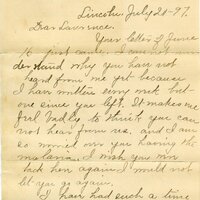 Lincoln July 20-97.
Dear Lawrence.
Your letter of June
just came. I can not
derstand why you hair not
heard from me yet because
I hair written every met but
one since you left. It makes me
feel badly to think you can
not hear from us, and I am
so worried over you having the
malaria. I wish you were
back here again I would not
let you go again.
I hair had such a time